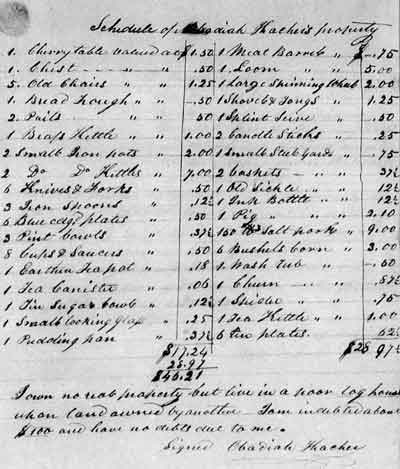 Schedule of Obadiah Thachers property
1. Cherry table valued at $1.50 1 Meat Barrel " $ .75
1. Chest " .50 1. Loom " 5.00
5. Old Chairs " 1.25 1 Large Spinning Wheel 2.00
1. Bread Trough " .50 1 Shovel & Tongs " 1.25
2. Pails " .50 1 Splint Seive " .50
1 Brass Kettle " 1.00 2 Candle Sticks .25
2 Small Iron pots " 2.00 1 Small Steel yards " .75
2 Do Do Kettles 7.00 2 Caskets " .37½
6 Knives & Forks .50 1 Old Sickle " .12½
3 Iron Spoons " .12½ 1 Ink Bottle " 12½
6 Blue edg'd plates " .50 1 Pig " 2.10
3 Pint Bowls " .37½ 150 lbs Salt pork " 9.00
8 Cups & Saucers " .50 6 Bushels Corn " 3.00
1 Earthen Teapot " .18 1. Wash tub " .50
1 Tea Canister " .06 1 Churn .87½
1 Tin Sugar bowl " .12½ 1 Spider " .75
1 Small looking Glass " .25 1 Tea Kettle " 1.00
1 Pudding pan " .37½ 6 tin plates. 62½
$17.24 $28 97½
28.97
$46.21
I own no real property but live in a poor log house
upon land owned by another I am indebted about
$100 and have no debts due to me.
Signed Obadiah Thacher